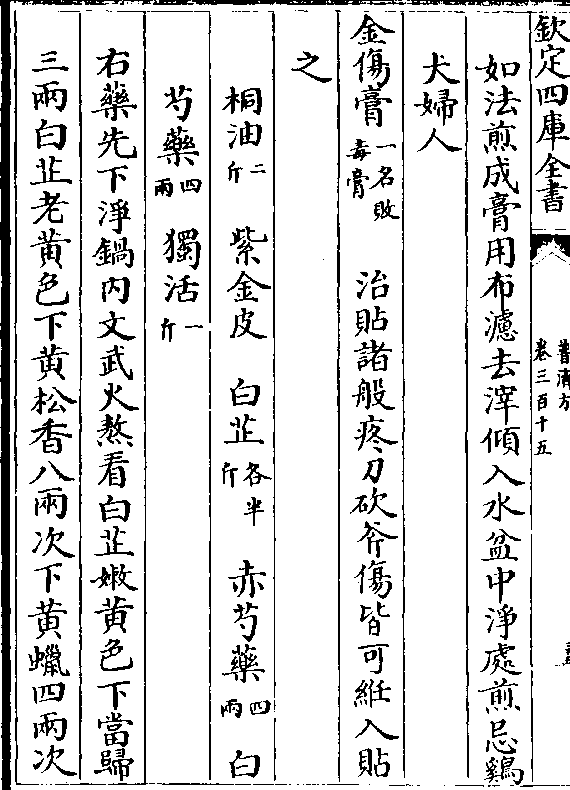 欽定四庫全書
普濟方
卷三百十五
如法煎成膏用布濾去滓傾入水盆中淨處煎忌鷄
犬婦人
金傷膏一名敗毒膏 治貼諸般疼刀砍斧傷皆可絍入貼
之
桐油二斤 紫金皮 白芷各半斤 赤芍藥四兩 白
芍藥四兩 獨活一斤
右藥先下淨鍋内文武火熬看白芷嫩黄色下當歸
三兩白芷老黄色下黄松香八兩次下黄蠟四兩次